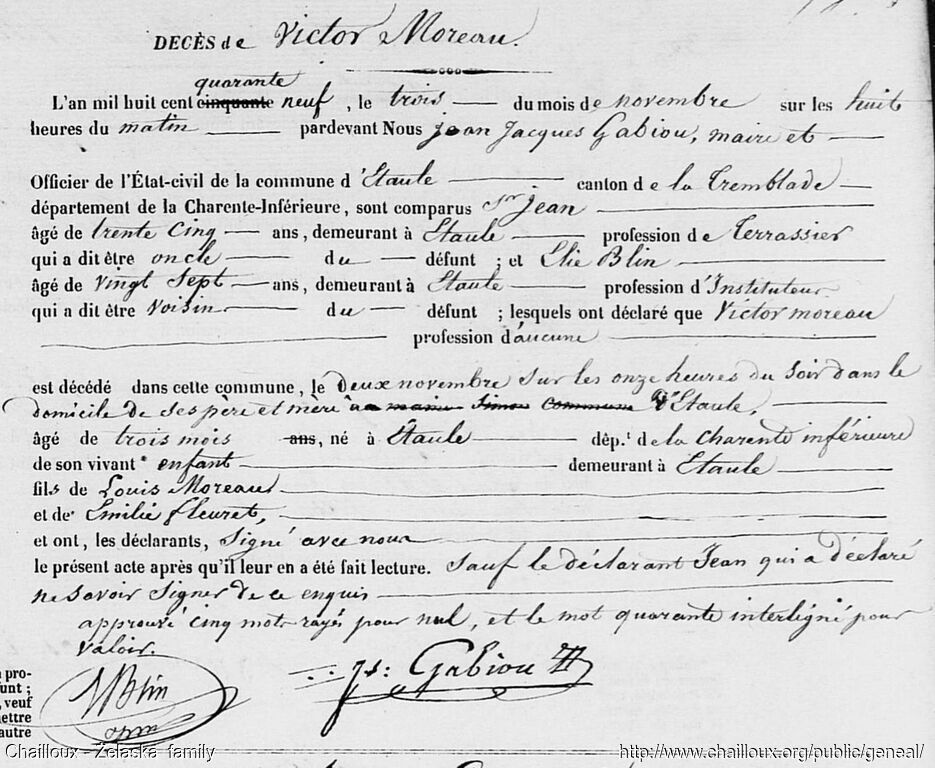 DECÈS de Victor Moreau.
quarante
L'an mil huit cent cinquante neuf, le trois du mois de novembre sur les huit
heures du matin pardevant Nous jean Jacques Gabiou, maire et
Officier de l'État-civil de la commune d'Etaule canton de la Tremblade
département de la Charente-Inférieure, sont comparus Jean
âgé de trente cinq ans, demeurant à Etaule profession de Terrassier
qui a dit être oncle du défunt ; et Elie Blin
âgé de vingt sept ans, demeurant à Etaule profession d'Instituteur
qui a dit être voisin du défunt ; lesquels ont déclaré que Victor moreau
profession d'aucune
est décédé dans cette commune, le deux novembre sur les onze heures du soir dans le
domicile de ses père et mère commune d'Etaule,
âgé de trois mois ans, né à Etaule dép.t de la charente inférieure
de son vivant enfant demeurant à Etaule
fils de Louis Moreau
et de Emilie fleuret,
et ont, les déclarants, signé avec nous
le présent acte après qu'il leur en a été fait lecture. Sauf le déclarant Jean qui a déclaré
ne savoir signer de ce enquis
approuvé cinq mots rayés pour nul, et le mot quarante interligné pour
valoir.
Blin
Js: Gabiou
pro-
funt ;
, veuf
mettre
autre
Chailloux - Zelaska family
http://www.chailloux.org/public/geneal/